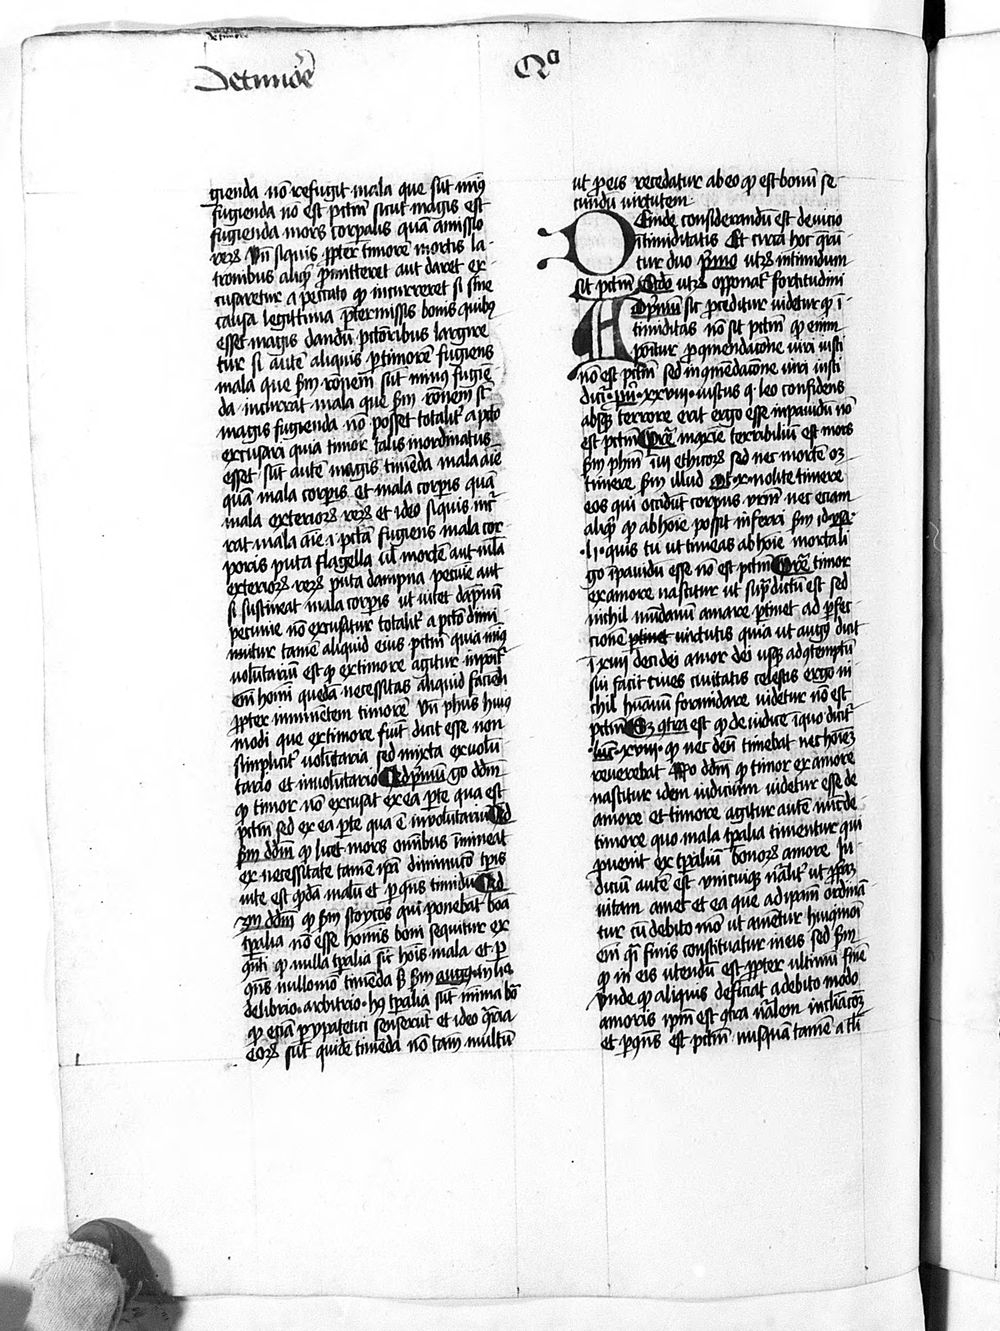 De timore
Qo
gienda nō refugit mala que sūt minꝰ
fugienda nō est pctm̄ sicut magis est
fugienda mors corporalis quā amissio
reꝝ Vn̄ siquis ꝓpter timorē mortis la-
tronibus aliqͥ ꝓmitteret aut daret ex-
cusaretur a peccato qͦ incurreret si sine
causa legittima p̄termissis bonis quibꝰ
esset magis dandū pctōribus largire
tur si autē aliquis ꝑ timorē fugiens
mala que scd̄m rōnem sūt minꝰ fugiē-
da incurrat mala que scd̄m rōnem st̄
magis fugienda nō posset totalit̄ a pctō
excusari quia timor talis inordinatus
esset sūt autē magis timēda mala aīe
quā mala corꝑis et mala corꝑis quā
mala exterioꝝ reꝝ et ideo siquis incͬ
rat mala aīe i pctā fugiens mala cor-
poris puta flagella ul̄ mortē aut mala
exterioꝝ reꝝ puta dampna pecuīe aut
si sustineat mala corꝑis ut vitet dapnū
pecunie nō excusatur totalit̄ a pctō dimi
nuitur tamē aliquid eius pctm̄ quia minꝰ
voluntariū est qͦ ex timore agitur inponit̄
em̄ homī quedā necessitas aliquid faciēdi
ꝓpter iminētem timorē Vn̄ phūs huiꝰ
modi que ex timore fiūt dicit esse non
simplicit̄ volūtaria sed mixta ex volū
tario et involūtario Ad pͥmū gͦ dd̄m
qͦ timor nō excusat ex ea ꝑte qua est
pctm̄ sed ex ea ꝑte qua ē involūtariū Ad
scd̄m dd̄m qͦ licet mors om̄ibus īmineat
ex necessitate tamē ip̄a diminucō tp̄is
vite est qͦdā malū et ꝑ qn̄s timēdū Ad
3m dd̄m qͦ scd̄m stoycos qui ponebāt bōa
tp̄alia nō esse homīs bona sequitur ex
qn̄ti qͦ nulla tp̄alia sīt hoīs mala et ꝑ
qn̄s nullo mō timēda sꝫ scd̄m augꝰ in liō
de libero arbitrio hꝫ tp̄alia sūt mīma bōa
qͦ eciā ꝑypatetici senserūt et ideo qͣtria
eoꝝ sūt quidē timēda nō tam̄ multū
ut ꝑ eis recedatur ab eo qͦ est bonū se
cundū virtutem
Deinde considerandū est de vicio
intimiditatis Et circa hoc qͣri
tur duo Pͥmo utꝝ intimidum
sit pctm̄ Scd̄o utꝝ opponat̄ fortitudini
Ad pͥmū sic ꝓceditur videtur qͦ ī-
timiditas nō sit pctm̄ qͦ enim
ponitur ꝓ qmendacōne viri iusti
nō est pctm̄ sed in qmēdacōne viri iusti
dicit̄ xxviii iustus qͣ leo confidens
absqꝫ terrore erit ergo esse inpavidū nō
est pctm̄ Pret̄ea maxīe terribiliū est mors
scd̄m phm̄ i iii ethicoꝝ sed nec mortē oꝫ
timere scd̄m illud Mt x nolite timere
eos qui occidūt corpus vrm̄ nec eciam
aliqͥ qͦ ab hoīe possit inferri scd̄m id ysa
li quis tu ut timeas ab hoīe mortali
gͦ īpavidū esse nō est pctm̄ Pret̄ea timor
ex amore nascitur ut supͣ dictū est sed
nichil mūdanū amare ꝑtinet ad ꝑfec
cionē virtutis quia ut augꝰ dicit
ī xiiii de ci dei amor dei usqꝫ ad qtemptū
sui facit cives civitatis celestis ergo ni
chil hūanū formidare videtur nō est
pctm̄ Sꝫ qͣtra est qͦ de iudice iniquo dicit̄
luc xviii qͦ nec deū timebat nec hōīeꝫ
reverebat Rͦ dd̄m qͦ timor ex amore
nascitur idem iudicium videtur esse de
amore et timore agitur autē nūc de
timore quo mala tp̄alia timentur qui
ꝓvenit ex tp̄aliū bonoꝝ amore In
dictū autē est unicuiqꝫ nāalit̄ ut ꝓpͥaꝫ
vitam amet et ea que ad ipam ordinā
tur cū debito mō ut ametur huiqmōi
em̄ qͣsi finis constituatur in eis sed scd̄m
qͦ in eis utendū est ꝓpter ultimū finē
Unde qͦ aliquis deficiat a debito modo
amoris ip̄m est qͣtra nālem inclīacōꝫ
et ꝑ qn̄s est pctm̄ nusquā tamē a tli